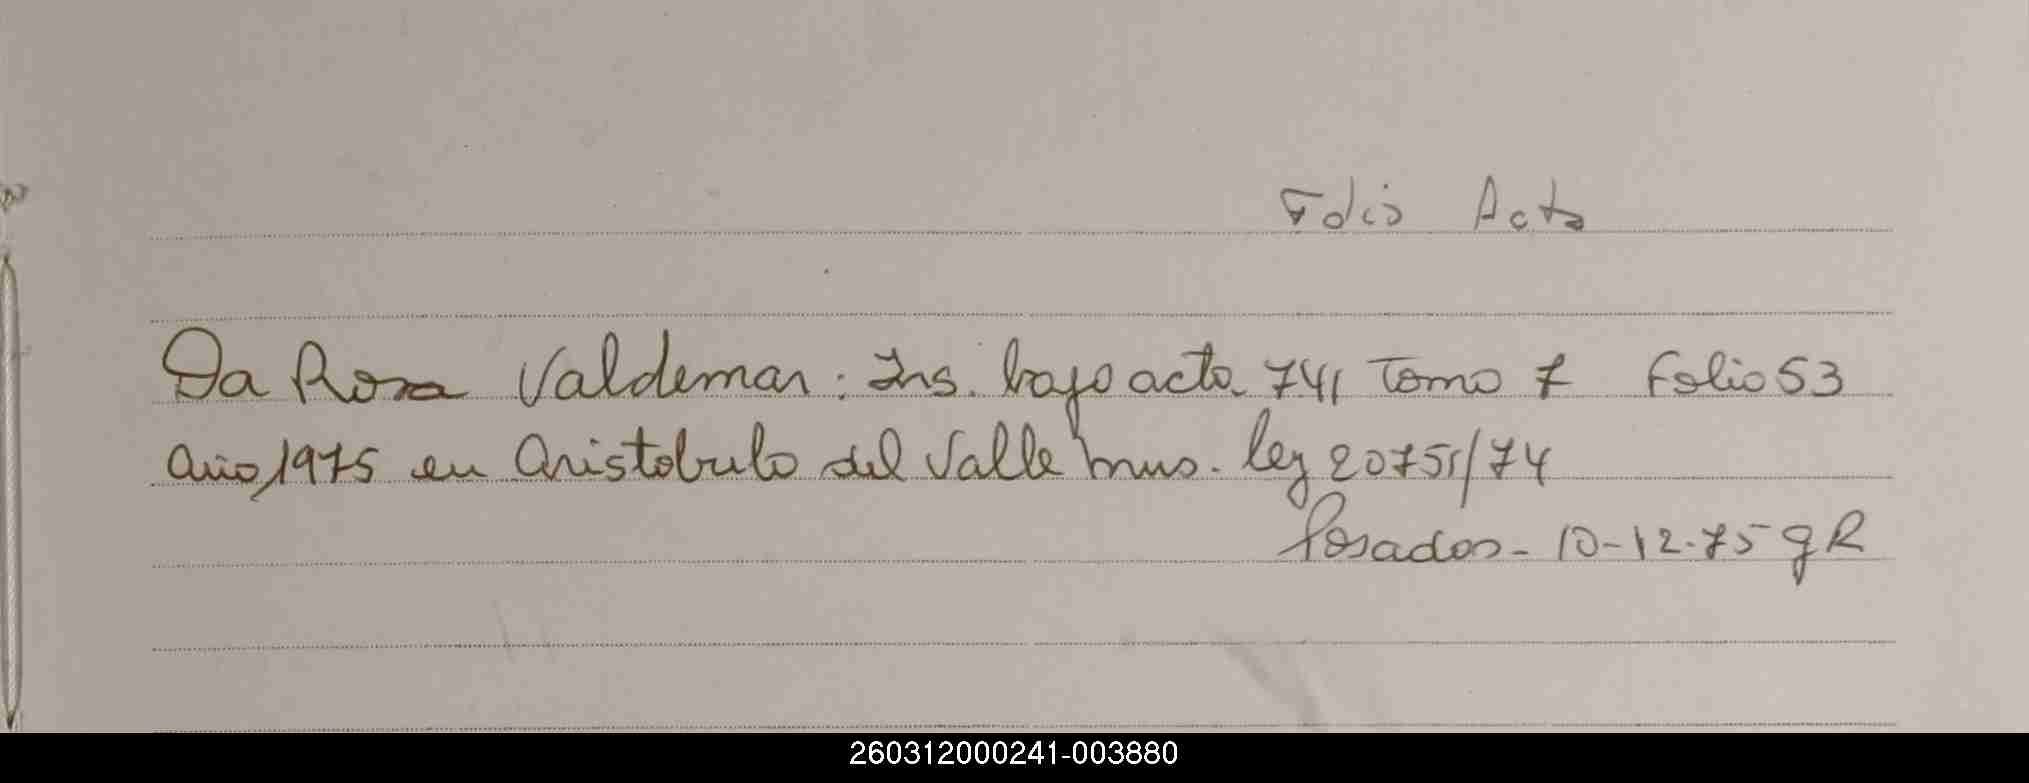 Folio Acta
Da Rosa Valdemar: Ins. bajo acta 741 Tomo 7 Folio 53
año 1975 en Aristobulo del Valle mns. ley 20751/74
Posadas - 10-12-75 gR
260312000241-003880